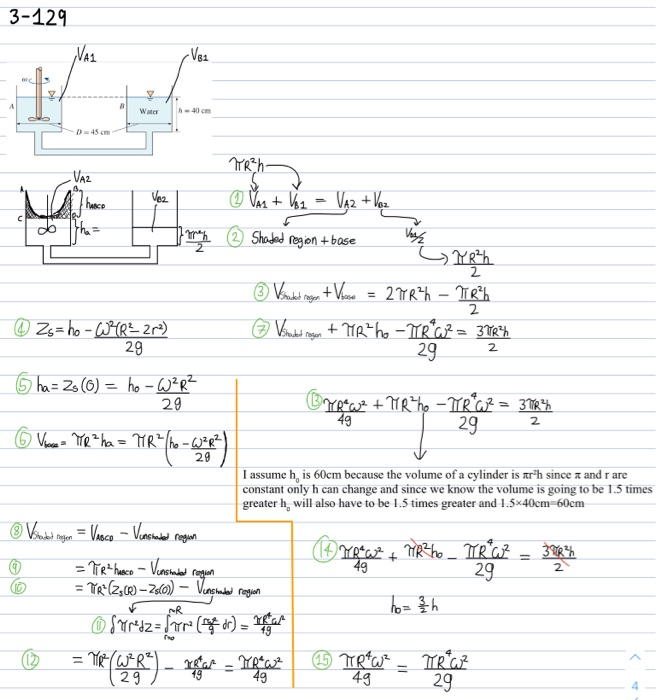 3-129
V_A1
V_B1
ω
A
B
Water
h = 40 cm
D = 45 cm
πR²h
V_A2
V_B2
A
B
C
h_ABCD
h_a =
πr²h/2
① V_A1 + V_B1 = V_A2 + V_B2
② Shaded region + base
πR²h/2
③ V_Shaded region + V_base = 2πR²h - πR²h/2
④ Z_s = h_o - ω²(R² - 2r²)/2g
⑦ V_Shaded region + πR²h_o - πR⁴ω²/2g = 3πR²h/2
⑤ h_a = Z_s(0) = h_o - ω²R²/2g
⑬ πR⁴ω²/4g + πR²h_o - πR⁴ω²/2g = 3πR²h/2
⑥ V_base = πR²h_a = πR²(h_o - ω²R²/2g)
I assume h_o is 60cm because the volume of a cylinder is πr²h since π and r are
constant only h can change and since we know the volume is going to be 1.5 times
greater h_o will also have to be 1.5 times greater and 1.5×40cm=60cm
⑧ V_Shaded region = V_ABCD - V_unshaded region
⑨ = πR²h_ABCD - V_unshaded region
⑩ = πR²(Z_s(R) - Z_s(0)) - V_unshaded region
⑪ ∫πr²dz = ∫πr²(rω²/g dr) = πR⁴ω²/4g
⑫ = πR²(ω²R²/2g) - πR⁴ω²/4g = πR⁴ω²/4g
⑭ πR⁴ω²/4g + πR²h_o - πR⁴ω²/2g = 3πR²h/2
h_o = 3/2 h
⑮ πR⁴ω²/4g = πR⁴ω²/2g
4